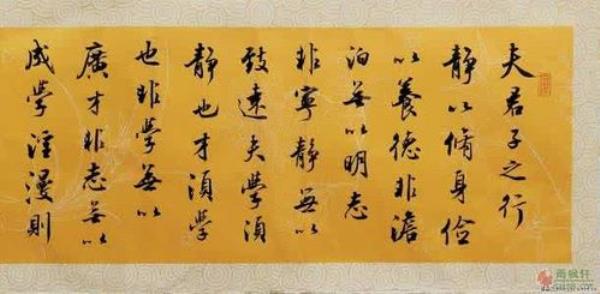 夫君子之行
静以脩身俭
以養德非澹
泊無以明志
非寧静無以
致遠夫學須
静也才須學
也非學無以
廣才非志無以
成學淫漫則
雨枫轩